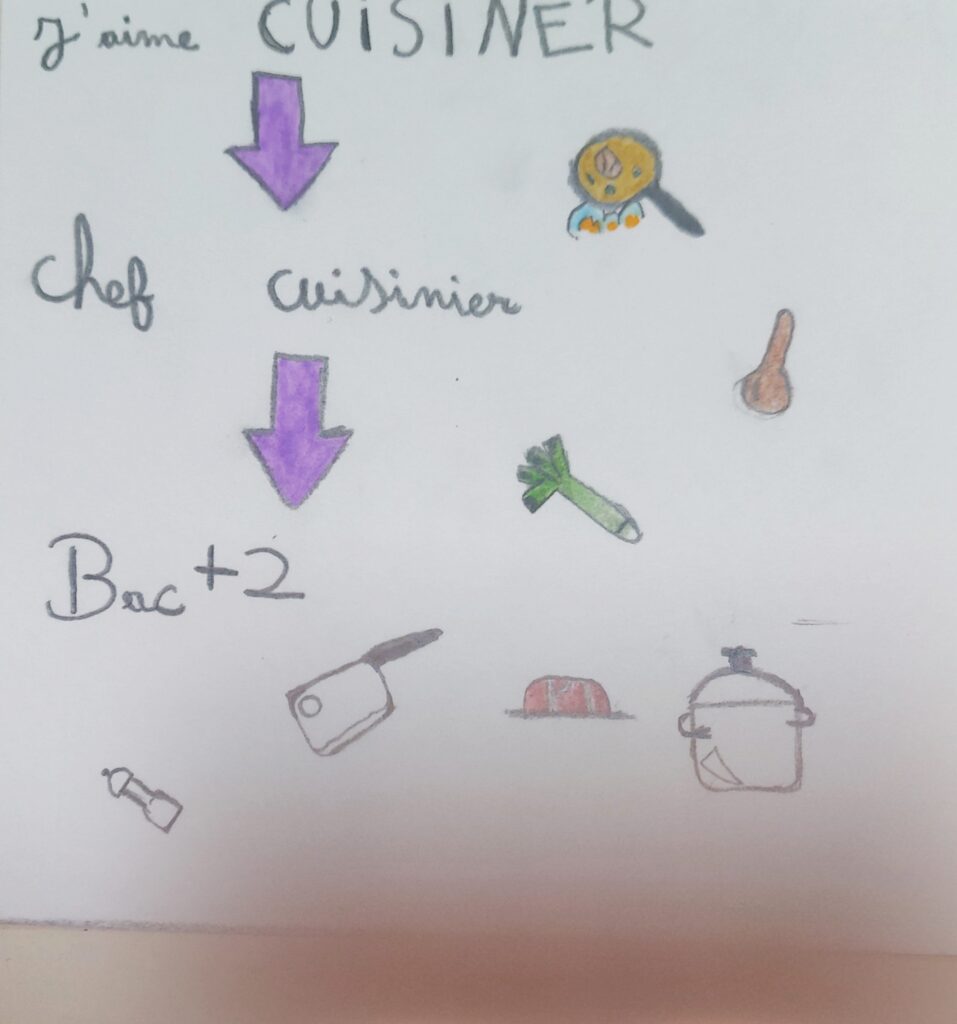 J'aime CUISINER
Chef cuisinier
Bac +2